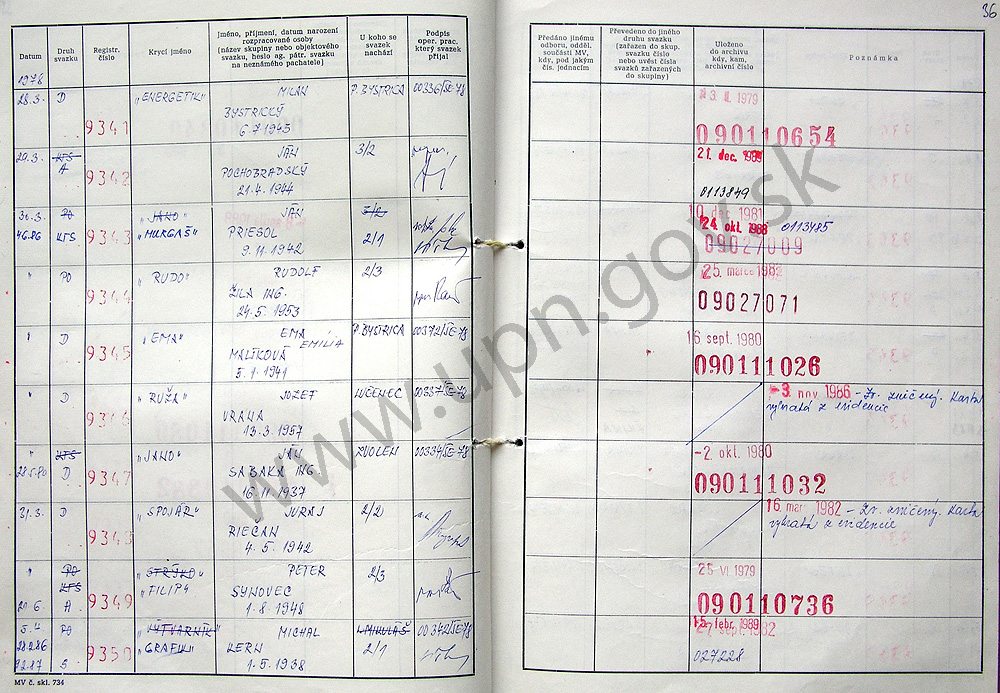 36
Datum
Druh svazku
Registr. číslo
Krycí jméno
Jméno, příjmení, datum narození
rozpracované osoby
(název skupiny nebo objektového
svazku, heslo ag. pátr. svazku
na neznámého pachatele)
U koho se
svazek
nachází
Podpis
oper. prac.
který svazek
přijal
Předáno jinému
odboru, odděl.
součásti MV,
kdy, pod jakým
čís. jednacím
Převedeno do jiného
druhu svazku
(zařazen do skup.
svazku číslo
nebo uvést čísla
svazků zařazených
do skupiny)
Uloženo
do archivu
kdy, kam,
archivní číslo
Poznámka
1978
28.3. D 9341 „ENERGETIK" MILAN P. BYSTRICA 00336/SE-78
BYSTRICKÝ
6.7.1945
1979
090110654
29.3. KTS 9342 JÁN 3/2
A POCHOBRADSKÝ
21.4.1944
21. dec. 1989
0113849
30.3. PO 9343 „JANO" JÁN 5/2
KTS „MURGAŠ" PRIESOL 2/1
9.11.1942
10 dec. 1981
24. okt. 1988 0113485
09027009
" PO 9344 „RUDO" RUDOLF 2/3
ŽILA ING.
24.5.1953
25. marec 1982
09027071
" D 9345 „EMA" EMA P. BYSTRICA 00372/SE-78
EMÍLIA
MALÍKOVÁ
5.1.1941
16 sept. 1980
090111026
" D 9346 „RUŽA" JOZEF LUČENEC 00337/SE-78
VRANA
13.3.1957
-3. nov 1986 - Zv. zničený. Karta
vybratá z evidencie
" KTS 9347 „JANO" JÁN ZVOLEN 00334/SE-78
28.5.80 D SABAKA ING.
16.11.1937
-2. okt. 1980
090111032
31.3. D 9348 „SPOJÁR" JURAJ 2/2
RIEČAN
4.5.1942
16 mar. 1982 - Zv. zničený. Karta
vybratá z evidencie
" PO 9349 „STRÝKO" PETER 2/3
KTS „FILIP" SYNOVEC
20.6. A 1.8.1948
25 VI 1979
090110736
5.4. PO 9350 „VÝTVARNÍK" MICHAL L. MIKULÁŠ 00342/SE-78
28.2.86 „GRAFIK" KERN 2/1
S 1.5.1938
15. febr. 1989
27 sept. 1982
027228
MV č. skl. 734
www.upn.gov.sk